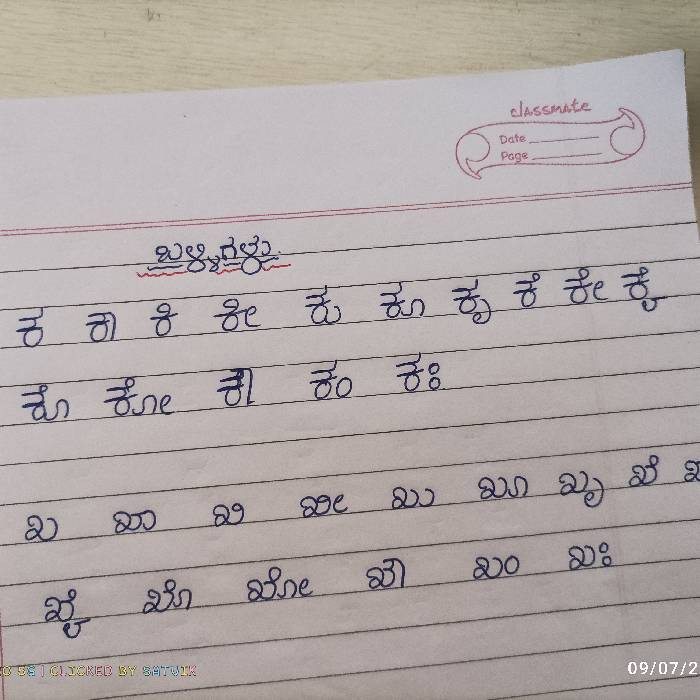 classmate
Date
Page
ಬಳ್ಳಿಗಳು
ಕ ಕಾ ಕಿ ಕೀ ಕು ಕೂ ಕೃ ಕೆ ಕೇ ಕೈ
ಕೊ ಕೋ ಕೌ ಕಂ ಕಃ
ಖ ಖಾ ಖಿ ಖೀ ಖು ಖೂ ಖೃ ಖೆ
ಖೈ ಖೊ ಖೋ ಖೌ ಖಂ ಖಃ
CLICKED BY SATVIK